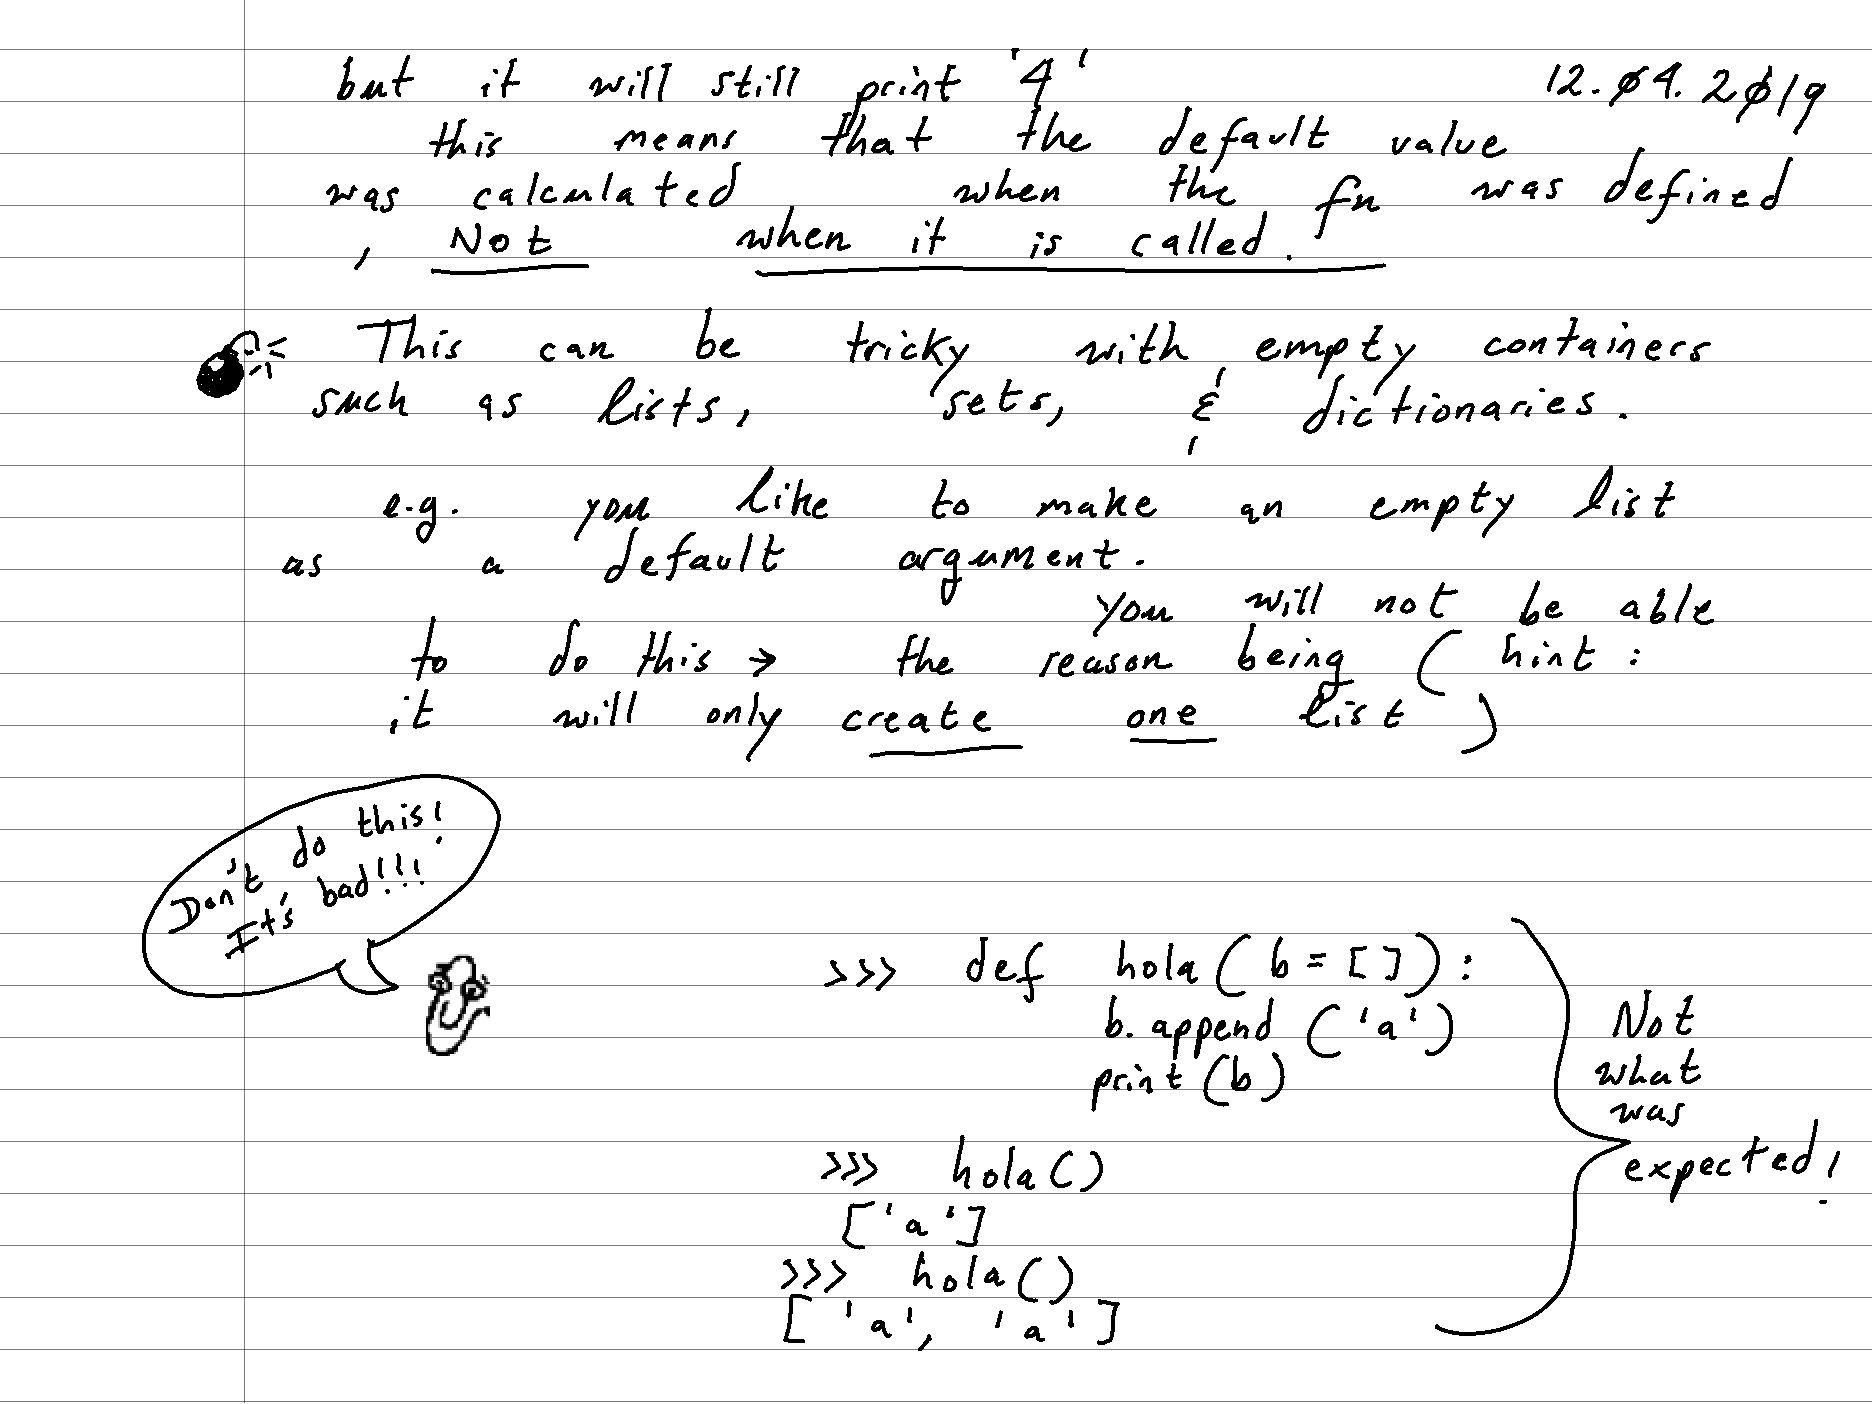 but it will still print '4'
12.04.2019
this means that the default value
was calculated when the fn was defined
, Not when it is called.
This can be tricky with empty containers
such as lists, sets, & dictionaries.
e.g. you like to make an empty list
as a default argument.
You will not be able
to do this → the reason being ( hint :
it will only create one list )
Don't do this!
It's bad!!!
>>> def hola ( b = [ ] ) :
b. append ( 'a' )
print (b)
>>> hola ( )
[ 'a' ]
>>> hola ( )
[ 'a', 'a' ]
Not
what
was
expected!